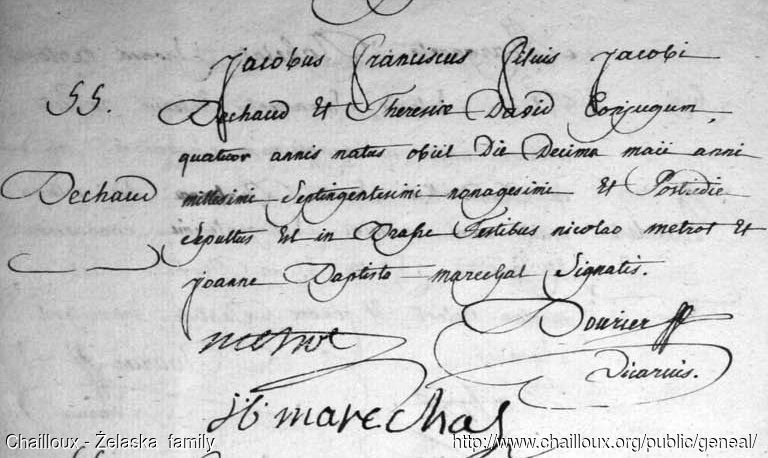 Jacobus Franciscus filius Jacobi
55.
Dechaud Et Theresiæ David Conjugum,
quatuor annis natus obiit Die Decima maii anni
Dechaud
millesimi Septingentesimi nonagesimi Et Postridie
Sepultus Est in Testibus nicolao metrot Et
joanne Baptista marechal Signatis.
metrot
Bourier
Vicarius.
JB marechal
Chailloux - Żelaska family
http://www.chailloux.org/public/geneal/